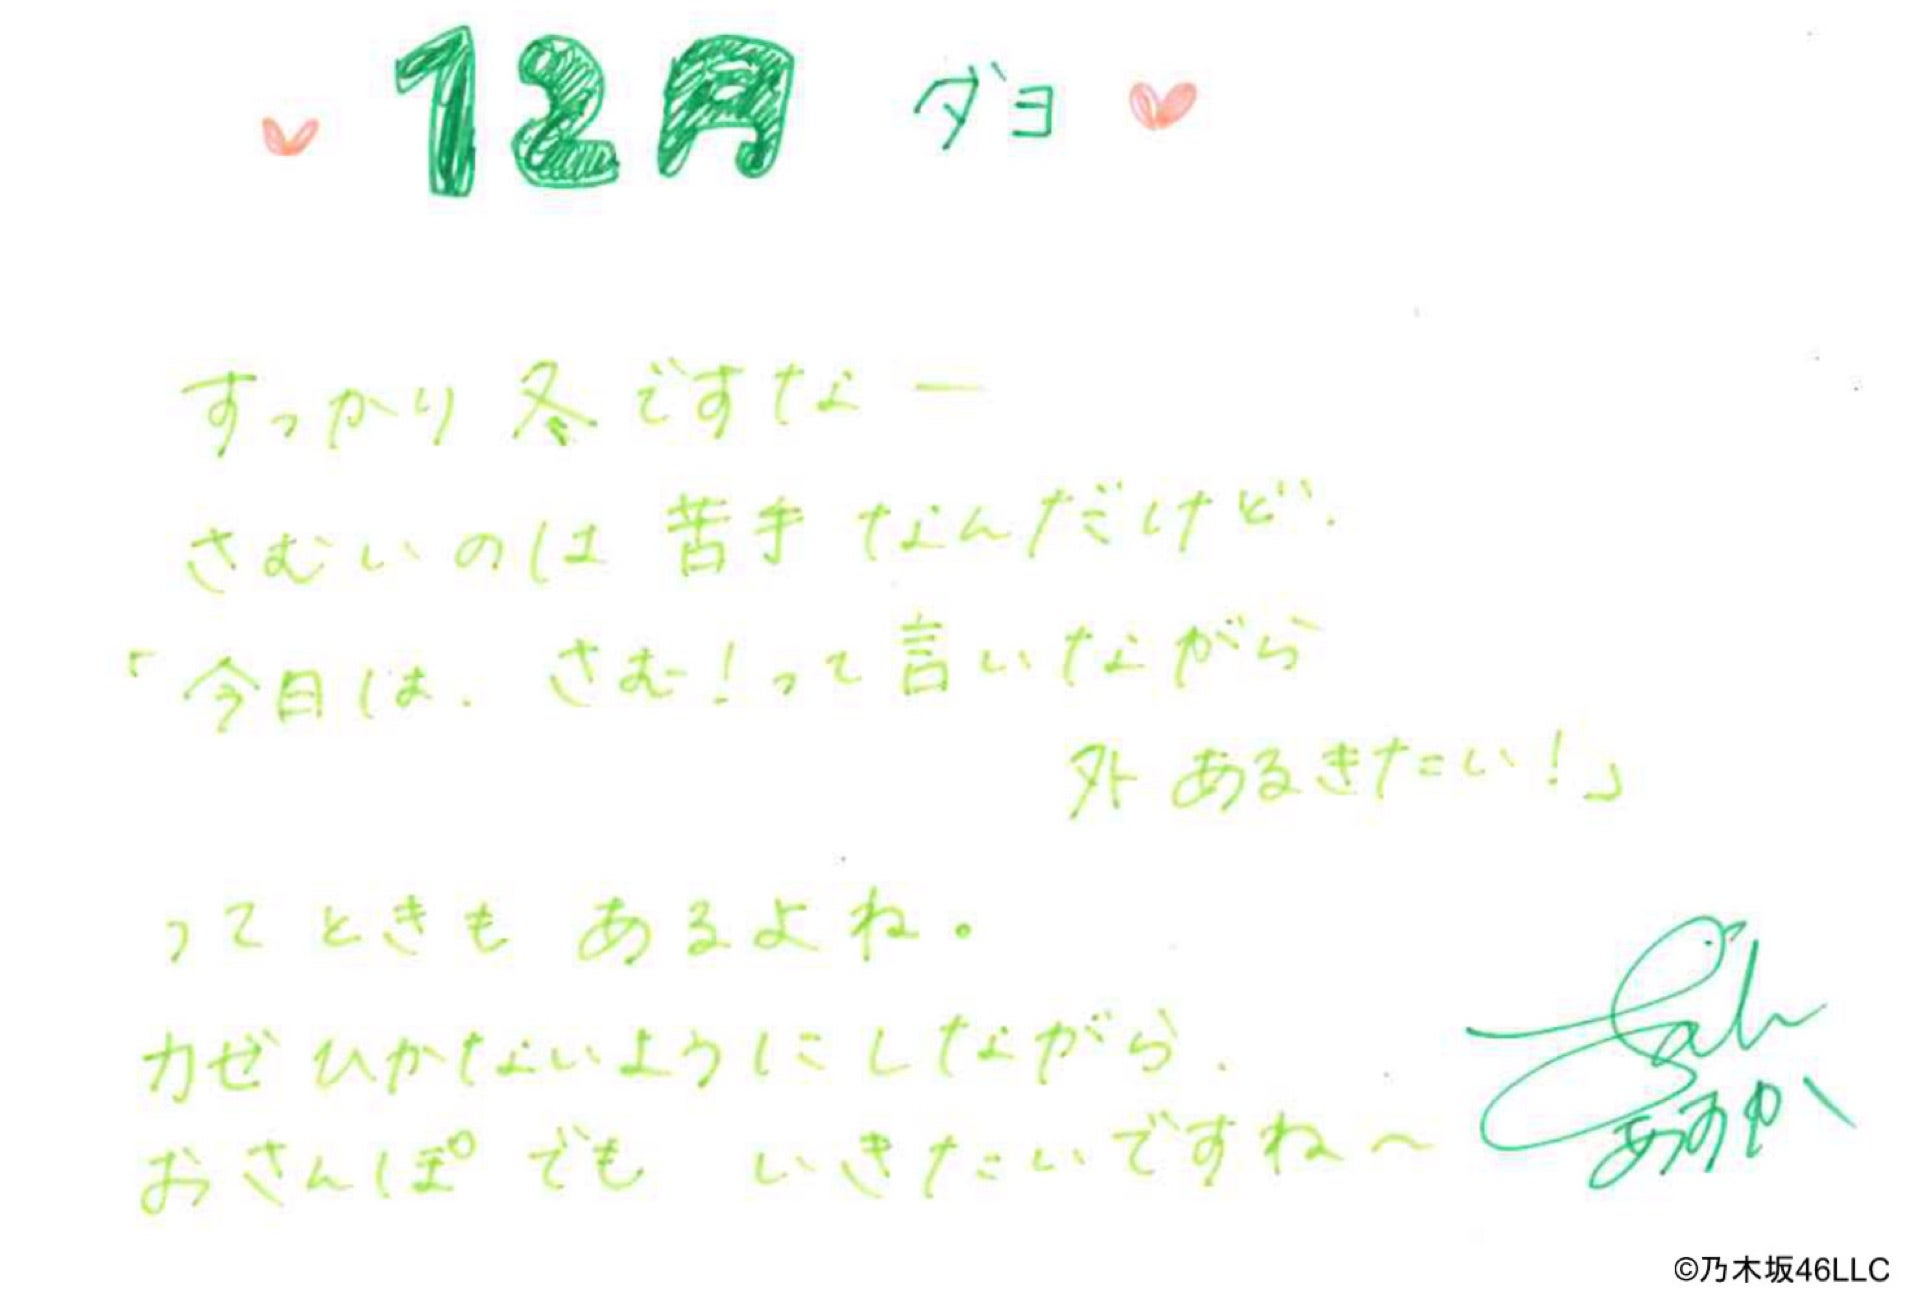 12月 ダヨ
すっかり冬ですなー
さむいのは苦手なんだけど.
「今日は.さむ!って言いながら
外あるきたい!」
ってときもあるよね。
カゼひかないようにしながら.
おさんぽでも いきたいですね〜
©乃木坂46LLC